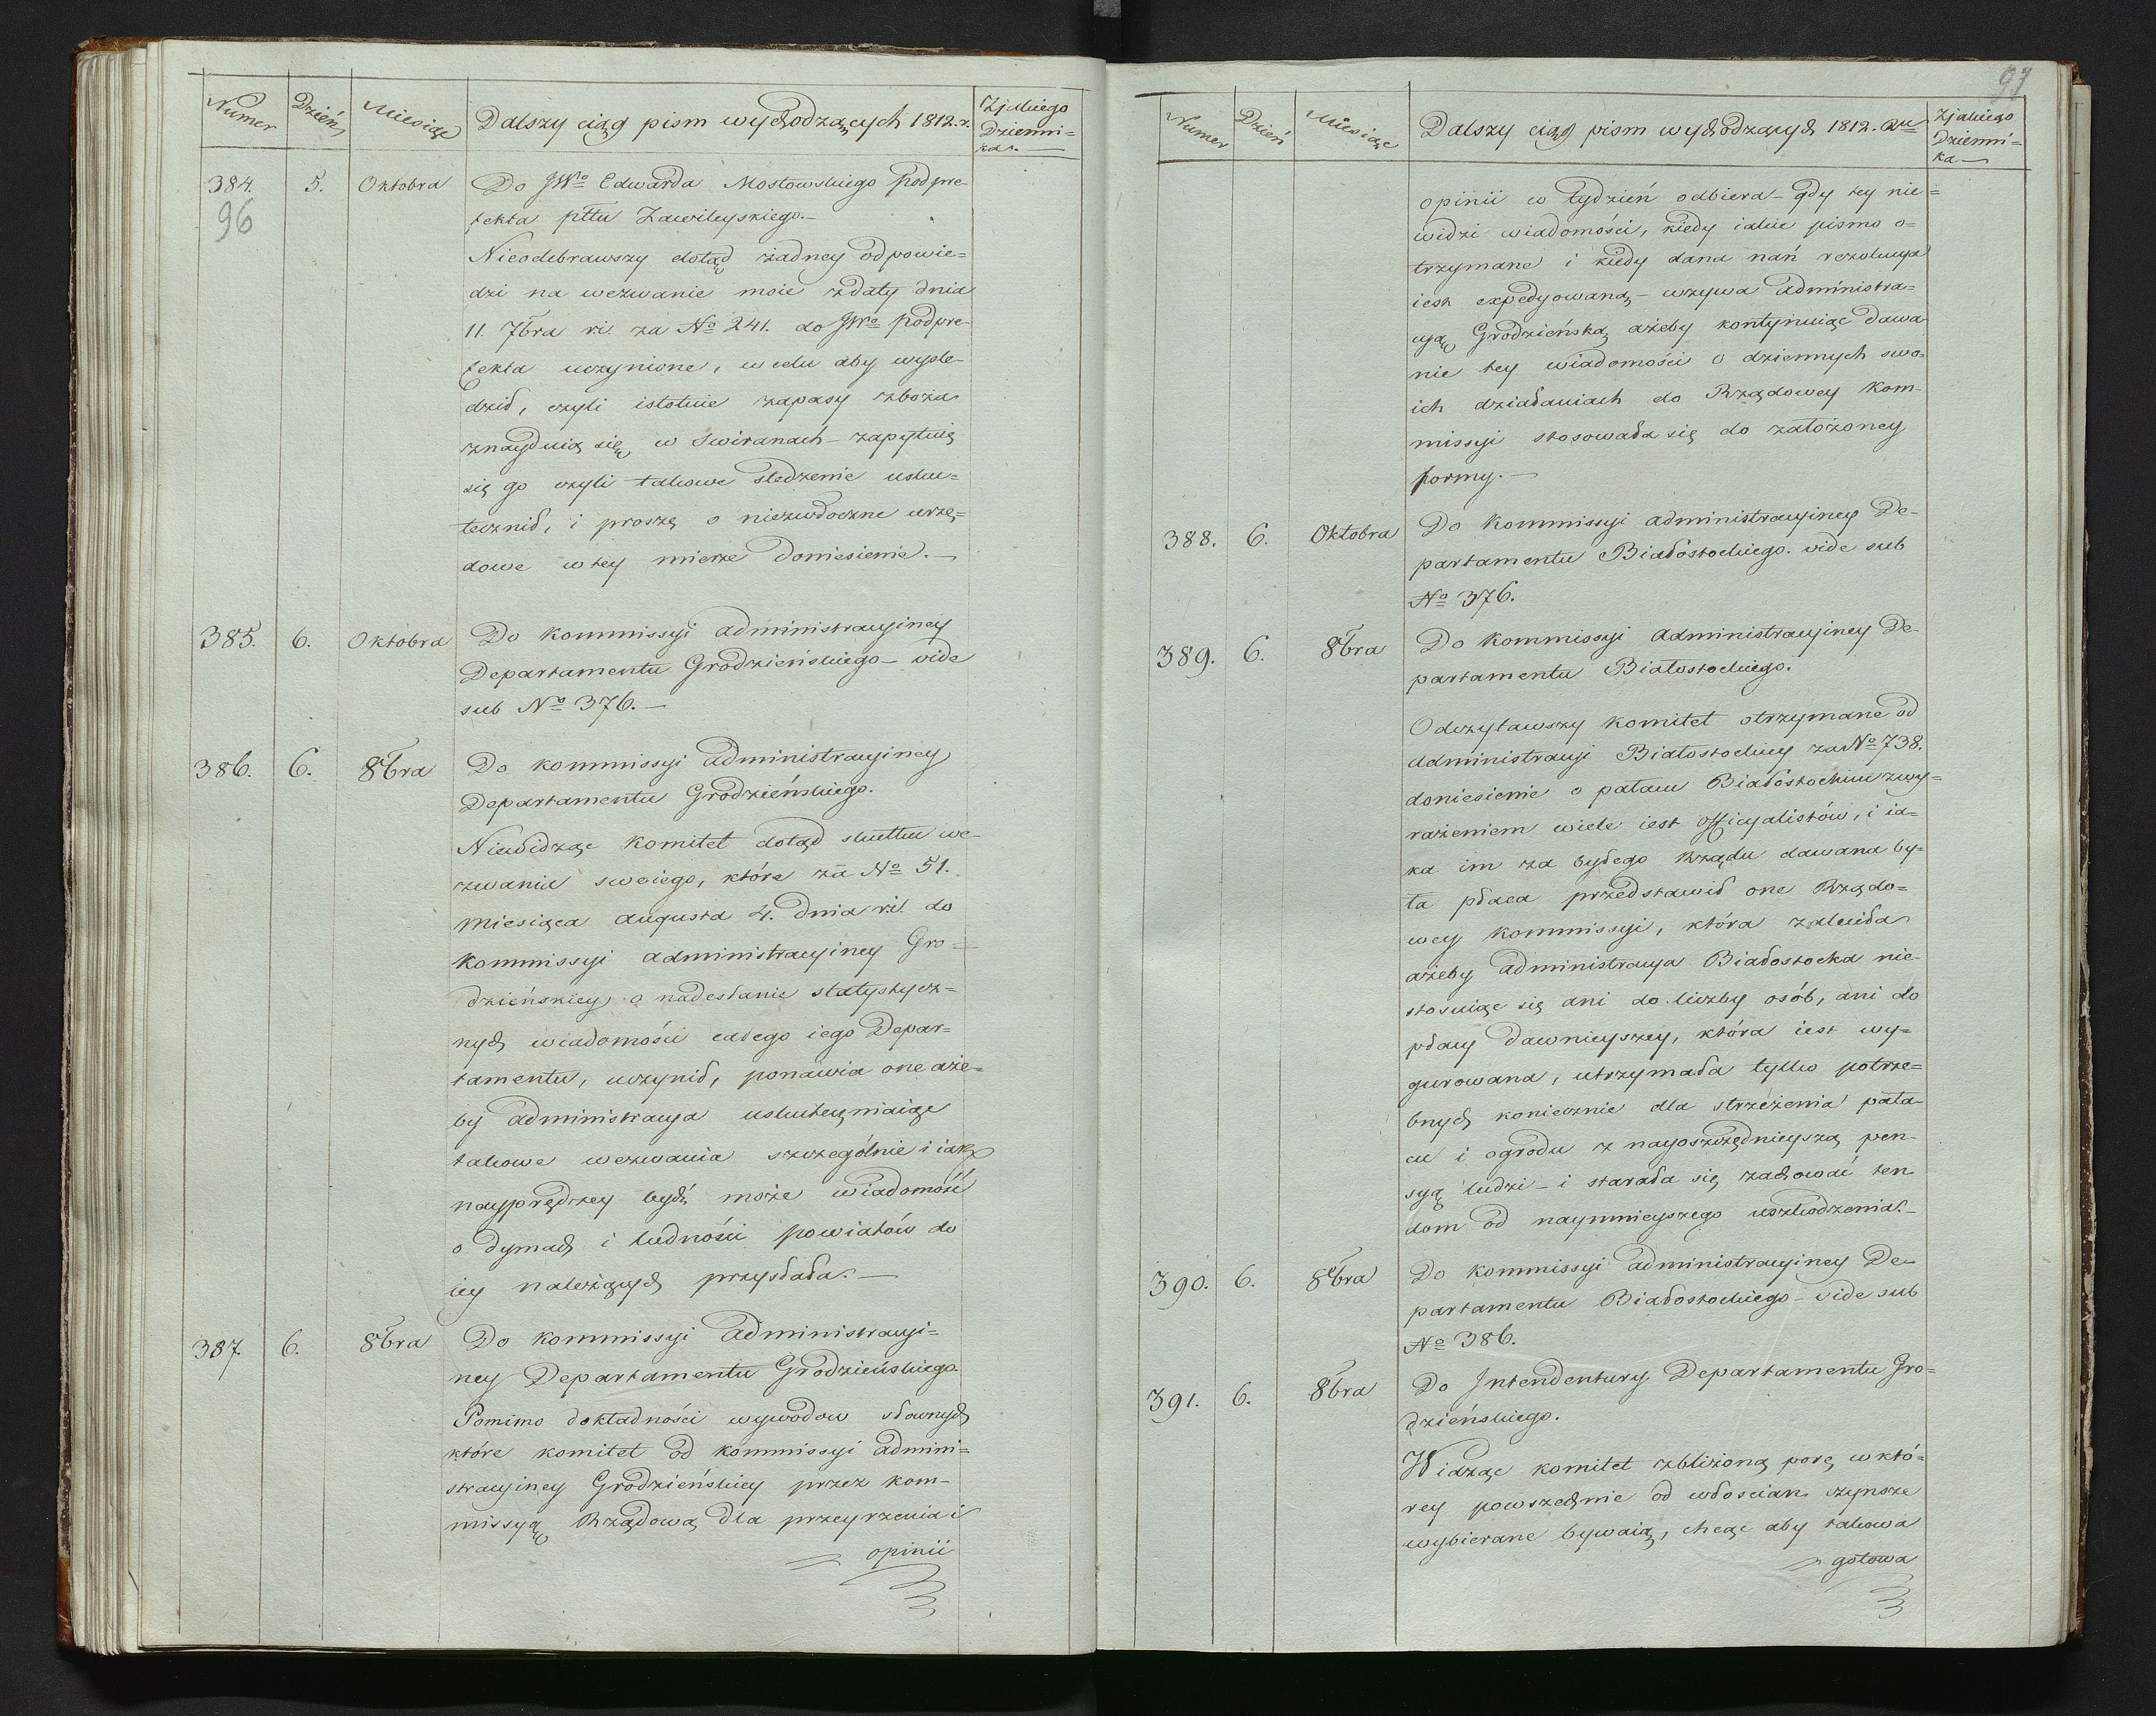 Numer
Dzień
Miesiąc
Dalszy ciąg pism wychodzących 1812. r.
Zjakiego
Dzienni=
ka.
384.
5.
Oktobra
96
Do JWo Edwarda Mostowskiego Podpre-
fekta pttu Zawileyskiego.—
Nieodebrawszy dotąd żadney odpowie=
dzi na wezwanie moie zdaty dnia
11. 7bra ri. za No 241. do JWo Podpre-
fekta uczynione, w celu aby wyśle-
dził, czyli istotnie zapasy zboża
znayduią się w Swiranach — zapytuię
się go czyli takowe śledzenie usku=
tecznił, i proszę o niezwłoczne urzę=
dowe w tey mierze doniesienie.—
385.
6.
Oktobra
Do Kommissyi administracyiney
Departamentu Grodzieńskiego — vide
sub No 376.—
386.
6.
8bra
Do Kommissyi administracyiney
Departamentu Grodzieńskiego.
Niewidząc Komitet dotąd skutku we-
zwania swoiego, które za No 51.
Miesiąca Augusta 4. dnia ri. do
Kommissyi administracyiney Gro=
dzieńskiey o nadesłanie statystycz=
nych wiadomości całego iego Depar=
tamentu, uczynił, ponawia one aże=
by administracya uskuteczniaiąc
takowe wezwania szczególnie i iak
nayprędzey bydź może wiadomość
o dymach i ludności powiatów do
iey należących przysłała.—
387.
6.
8bra
Do Kommissyi administracyi=
ney Departamentu Grodzieńskiego.
Pomimo dokładności wywodow słownych
które komitet od Kommissyi admini=
stracyiney Grodzieńskiey przez Kom-
missyą Rządową dla przeyrzenia i
opinii
97
Numer
Dzień
Miesiąc
Dalszy ciąg pism wychodzących 1812.
Zjakiego
Dzienni=
ka—
opinii w tydzień odbiera — gdy tey nie=
widzi wiadomości, kiedy iakie pismo o=
trzymane i kiedy dana nań rezolucya
iest expedyowaną — wzywa administra=
cyą Grodzieńską ażeby kontynuiąc dawa-
nie tey wiadomości o dziennych swo=
ich działaniach do Rządowey Kom-
missyi stosowała się do założoney
formy.—
388.
6.
Oktobra
Do Kommissyi administracyiney De-
partamentu Białostockiego. vide sub
No 376.
389.
6.
8bra
Do Kommissyi administracyiney De-
partamentu Białostockiego.
Odczytawszy komitet otrzymane od
administracyi Białostockiey za No 738.
doniesienie o pałacu Białostockim zwy=
rażeniem wiele iest officyalistów, i ia=
ka im za byłego Rządu dawana by=
ła płaca przedstawił one Rządo=
wey Kommissyi, która zaleciła
ażeby administracya Białostocka nie-
stosuiąc się ani do liczby osób, ani do
płacy dawnieyszey, która iest wy=
gurowana, utrzymała tylko potrze=
bnych koniecznie dla strzeżenia pała-
cu i ogrodu z nayoszczędnieyszą pen-
syą ludzi — i starała się zachować ten
dom od naymnieyszego uszkodzenia.—
390.
6.
8bra
Do Kommissyi administracyiney De-
partamentu Białostockiego — vide sub
No 386.
391.
6.
8bra
Do Jntendentury Departamentu Gro=
dzieńskiego.
Widząc komitet zbliżoną porę, w któ=
rey powszechnie od włościan czynsze
wybierane bywaią, chcąc aby takowa
gotowa